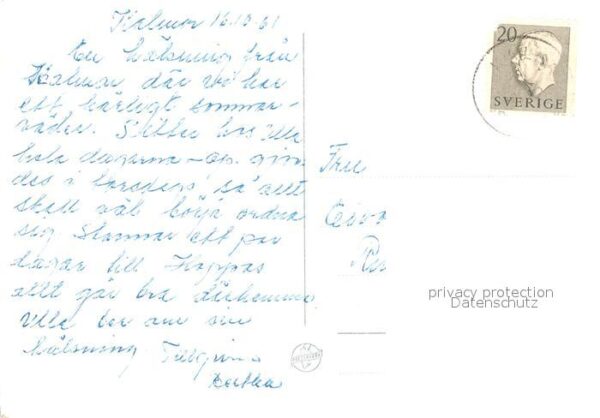 Kalmar 16.10-61
En hälsning från
Kalmar där vi har
ett härligt sommar-
väder. Sitter hos Ulla
hela dagarna
des i torsdags så allt
skall väl börja ordna
sig Stannar ett par
dagar till Hoppas
allt går bra därhemma
Ulla ber om sin
hälsning
20
SVERIGE
Fru
privacy protection
Datenschutz